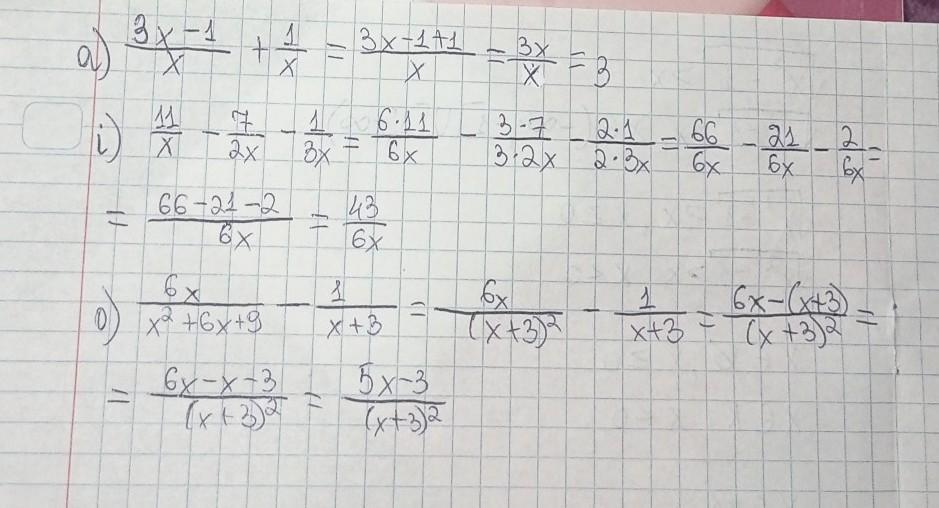 a) (3x-1)/x + 1/x = (3x-1+1)/x = 3x/x = 3
i) 11/x - 7/2x - 1/3x = 6·11/6x - 3·7/3·2x - 2·1/2·3x = 66/6x - 21/6x - 2/6x =
= (66-21-2)/6x = 43/6x
o) 6x/(x²+6x+9) - 1/(x+3) = 6x/(x+3)² - 1/(x+3) = (6x-(x+3))/(x+3)² =
= (6x-x-3)/(x+3)² = (5x-3)/(x+3)²